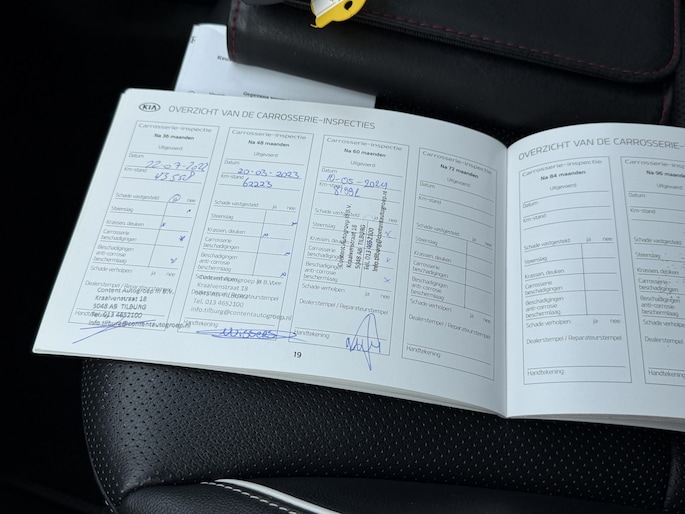 KIA OVERZICHT VAN DE CARROSSERIE-INSPECTIES
Carrosserie-inspectie
Na 36 maanden
Uitgevoerd:
Datum
22-07-2022
Km-stand
Schade vastgesteld ja nee
Steenslag
Krassen, deuken
Carrosserie
beschadigingen
Beschadigingen
anti-corrosie
beschermlaag
Schade verholpen: ja nee
Dealerstempel / Reparateurstempel
Content Autogroep III B.V.
Kraaivenstraat 18
5048 AB TILBURG
Tel. 013 4652100
info.tilburg@contentautogroep.nl
Handtekening
Carrosserie-inspectie
Na 48 maanden
Uitgevoerd:
Datum
20-03-2023
Km-stand
62223
Schade vastgesteld ja nee
Steenslag
Krassen, deuken
Carrosserie
beschadigingen
Beschadigingen
anti-corrosie
beschermlaag
Schade verholpen: ja nee
Kraaivenstraat 18
5048 AB TILBURG
Tel. 013 4652100
info.tilburg@contentautogroep.nl
Handtekening
Carrosserie-inspectie
Na 60 maanden
Uitgevoerd:
Datum
10-05-2024
Km-stand
Schade vastgesteld
Steenslag
Krassen, deuken
Carrosserie
beschadigingen
Beschadigingen
anti-corrosie
beschermlaag
Schade verholpen:
Dealerstempel / Reparateurstempel
Content Autogroep III B.V.
Kraaivenstraat 18
5048 AB TILBURG
Tel. 013 4652100
info.tilburg@contentautogroep.nl
Handtekening
Carrosserie-inspectie
Na 72 maanden
Uitgevoerd:
Datum
Km-stand
Schade vastgesteld ja nee
Steenslag
Krassen, deuken
Carrosserie
beschadigingen
Beschadigingen
anti-corrosie
beschermlaag
Schade verholpen: ja nee
Dealerstempel / Reparateurstempel
Handtekening
19
OVERZICHT VAN DE CARROSSERIE-
Carrosserie-inspectie
Na 84 maanden
Uitgevoerd:
Datum
Km-stand
Schade vastgesteld ja nee
Steenslag
Krassen, deuken
Carrosserie
beschadigingen
Beschadigingen
anti-corrosie
beschermlaag
Schade verholpen: ja nee
Dealerstempel / Reparateurstempel
Handtekening
Carrosserie-
Na 96
Datum
Km-stand
Schade vastgesteld
Steenslag
Krassen, deuken
Carrosserie
beschadigingen
Beschadigingen
anti-corrosie
beschermlaag
Schade verholpen:
Dealerstempel
Handtekening